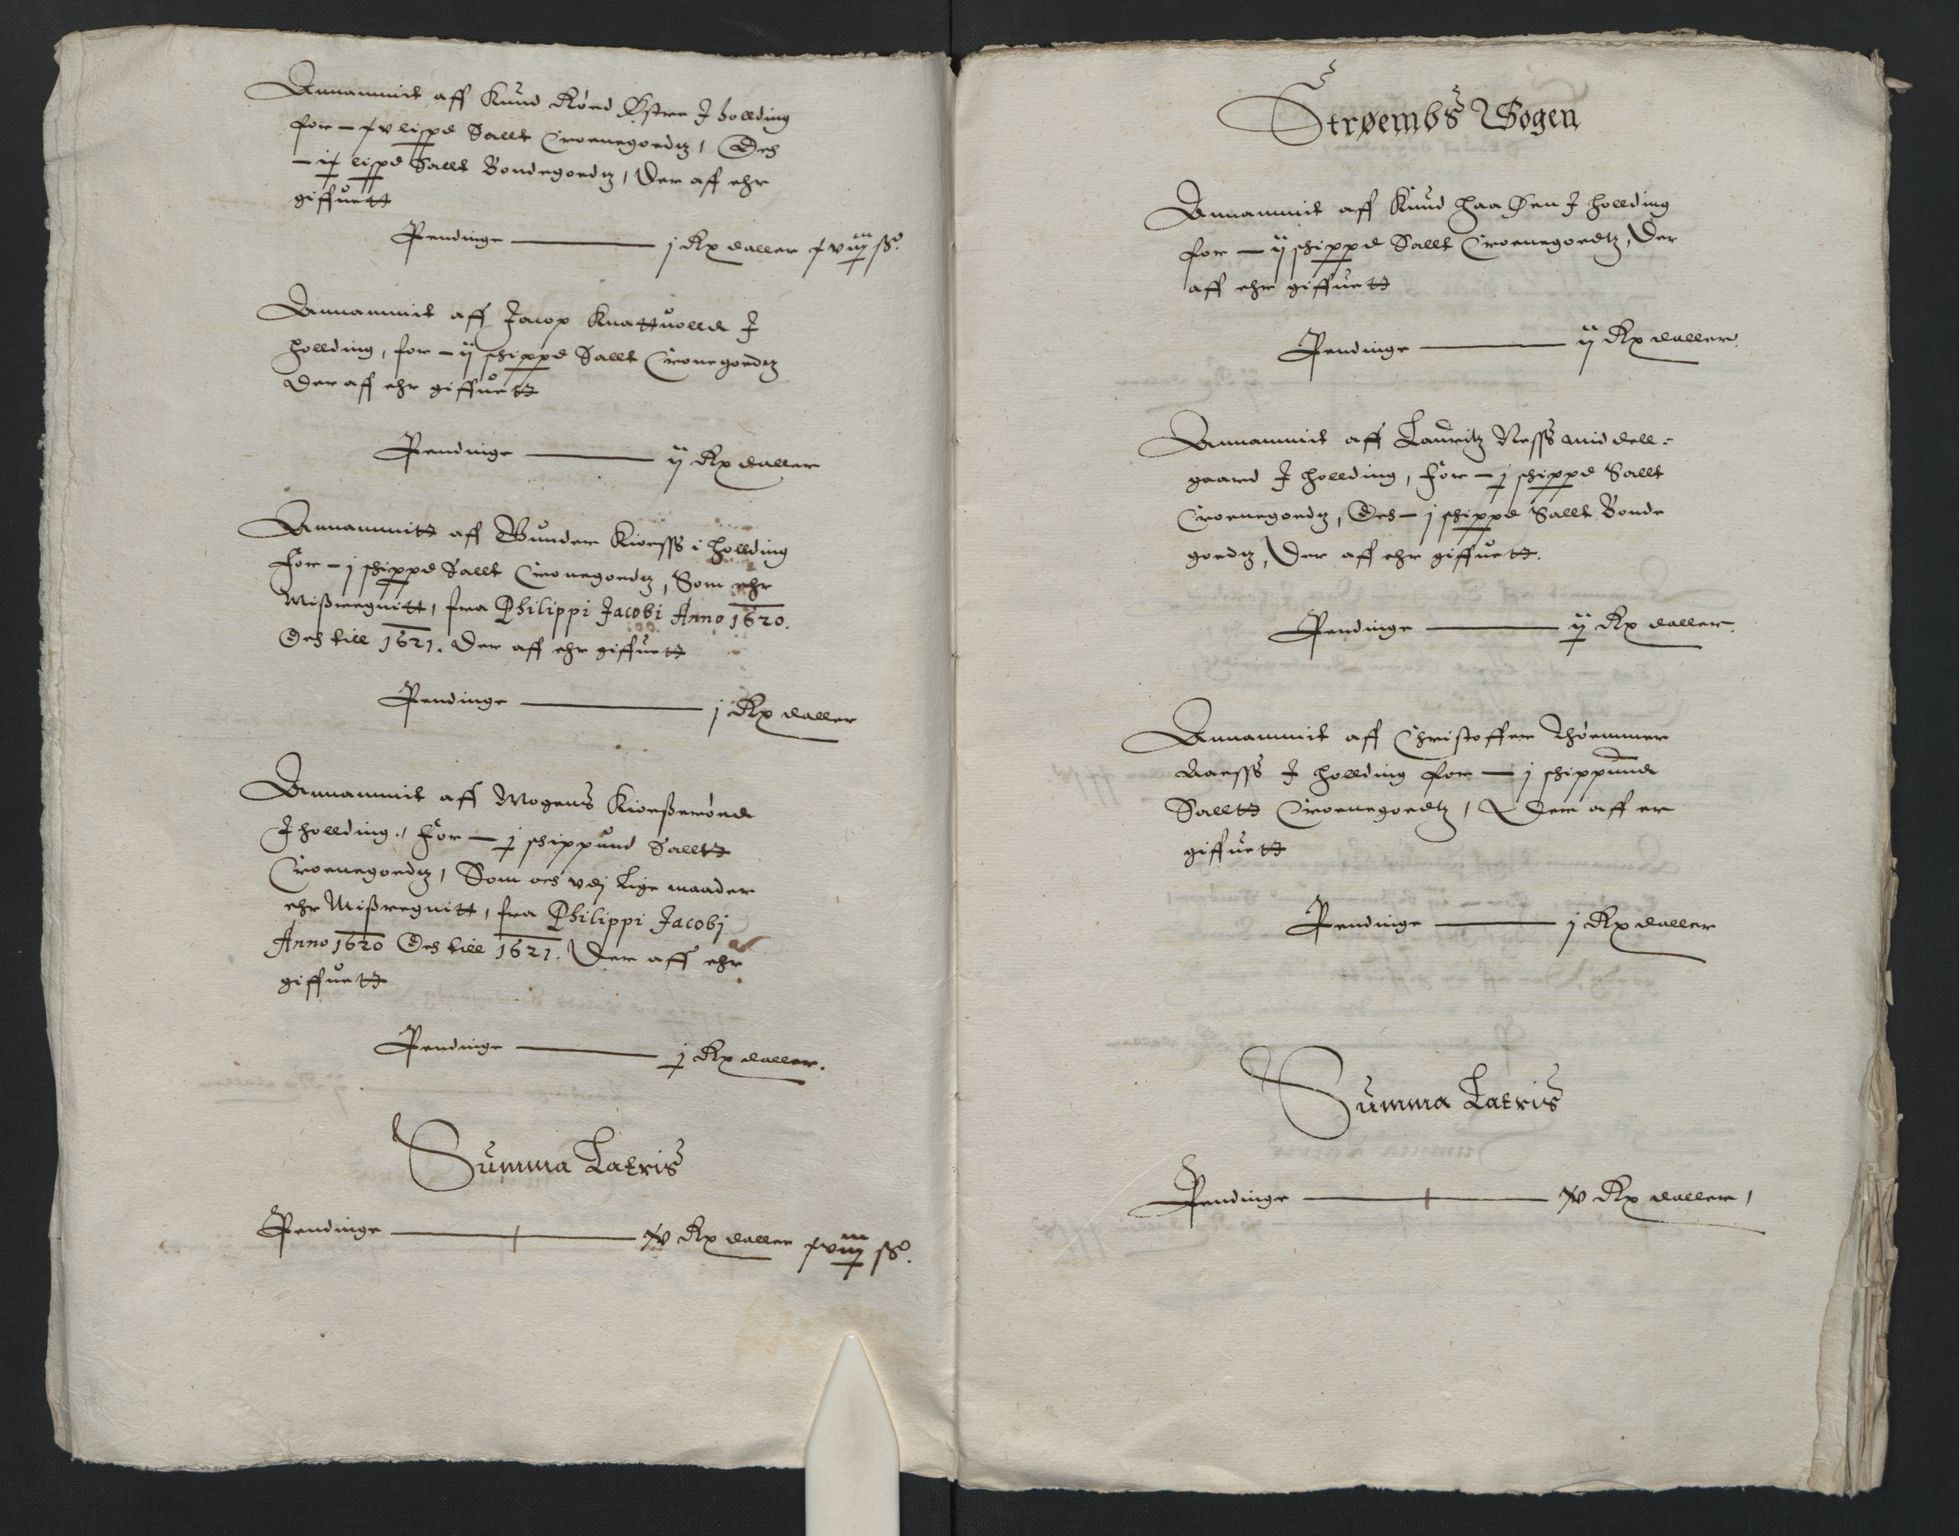 Annammit aff Knud RØed Østre J hollding
for — xv lispd Sallt Croenegoedtz, Och
— ix lispd Sallt Bondegoedtz, Der aff ehr
giffuett
Pendinge — j Rx daller xviij ß.
Annammit aff Jacop Knattuolld J
hollding, for — ij schippd Sallt Cronegoedtz
Der aff ehr giffuett
Pendinge — ij Rx daller
Annammitt aff Gunder Kioess i hollding
For — j schippd Sallt Cronegoedtz, Som ehr
Mißregnitt, fra Philippi Jacobi Anno 1620.
Och till 1621. Der aff ehr giffuett
Pendinge — j Rx daller
Annammit aff Mogens Kioeßerønd
J hollding, For — j schippund Salltt
Croenegoedtz, Som och vdj lige maader
ehr Mißregnitt, fra Philippi Jacobj
Anno 1620 Och till 1621. Der aff ehr
giffuett
Pendinge — j Rx daller.
Summa Latris
Pendinge — v Rx daller xviij ß.
Strøembs Sogen
Annammit aff Knud haaØen J hollding
for — ij schippd Sallt Croenegoedtz, Der
aff ehr giffuett
Pendinge — ij Rx daller.
Annammit aff LauritzNess middell-
gaard J hollding, For — j schippd Sallt
Croenegoedtz, Och — j schippd Sallt Bonde
goedtz, Der aff ehr giffuett.
Pendinge — ij Rx daller.
Annammit aff Christoffer Thøemmer
aaess J hollding for — j schippund
Salltt Croenegoedtz, Der aff er
giffuett
Pendinge — j Rx daller
Summa Latris
Pendinge — v Rx daller,